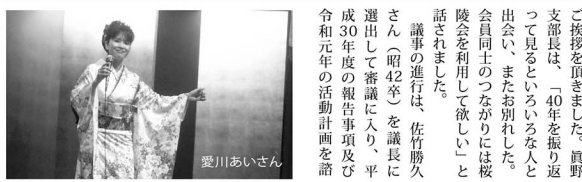 ご挨拶を頂きました。眞野
支部長は、「40年を振り返
って見るといろいろな人と
出会い、またお別れした。
会員同士のつながりには桜
陵会を利用して欲しい」と
話されました。
議事の進行は、佐竹勝久
さん（昭42卒）を議長に
選出して審議に入り、平
成30年度の報告事項及び
令和元年の活動計画を諮
愛川あいさん